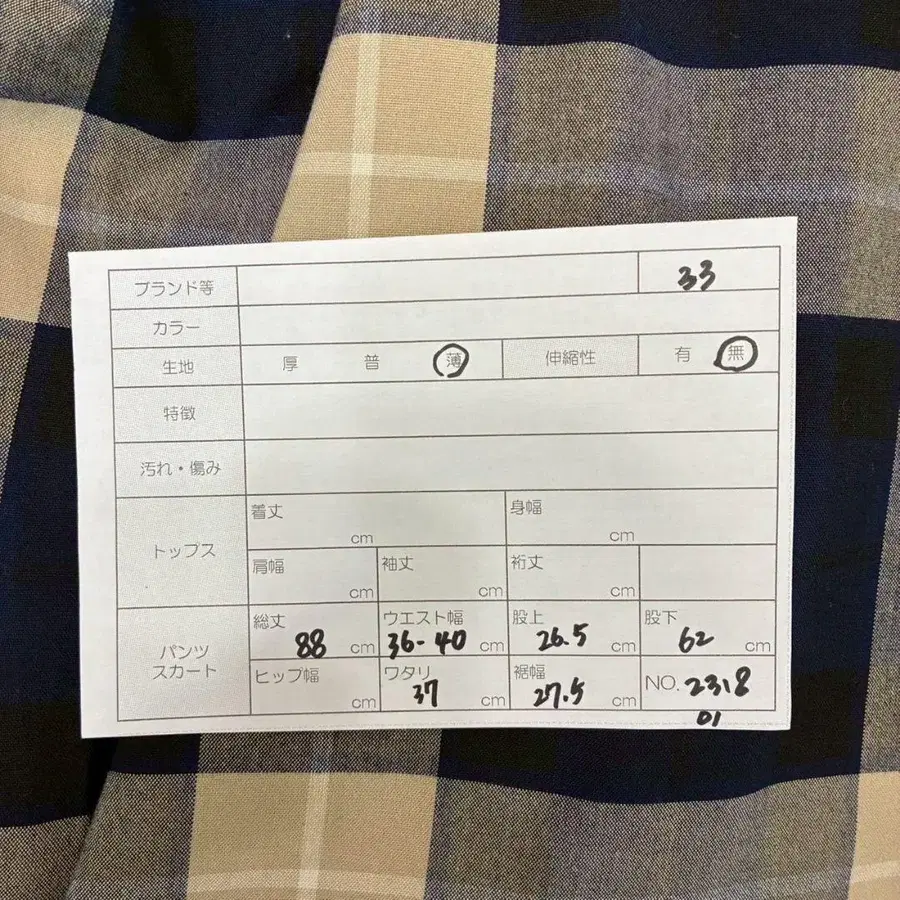 ブランド等 33
カラー
生地 厚 普 薄 伸縮性 有 無
特徴
汚れ・傷み
トップス
着丈 cm 身幅 cm
肩幅 cm 袖丈 cm 裄丈 cm
パンツ
スカート
総丈 88 cm ウエスト幅 36-40 cm 股上 26.5 cm 股下 62 cm
ヒップ幅 cm ワタリ 37 cm 裾幅 27.5 cm NO. 2318
01